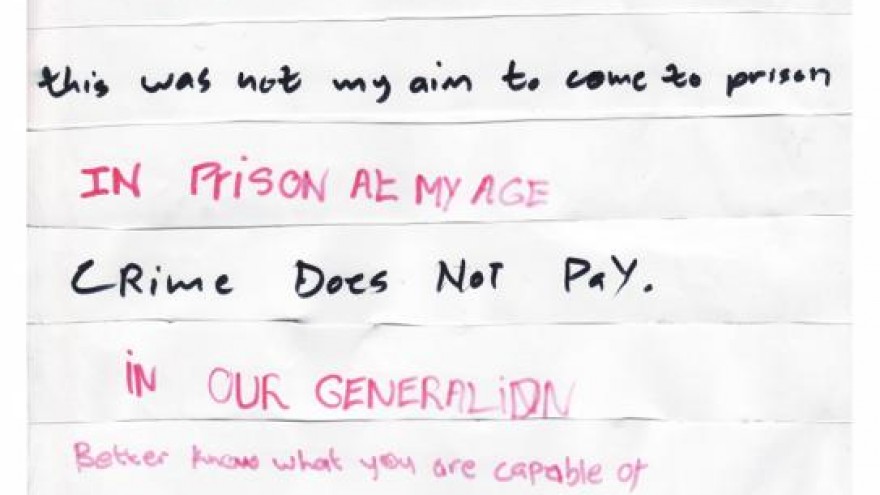 this was not my aim to come to prison
IN PRiSON At MY AGE
CRime Does NoT PaY.
iN OUR GENERALiON
Better know what you are capable of